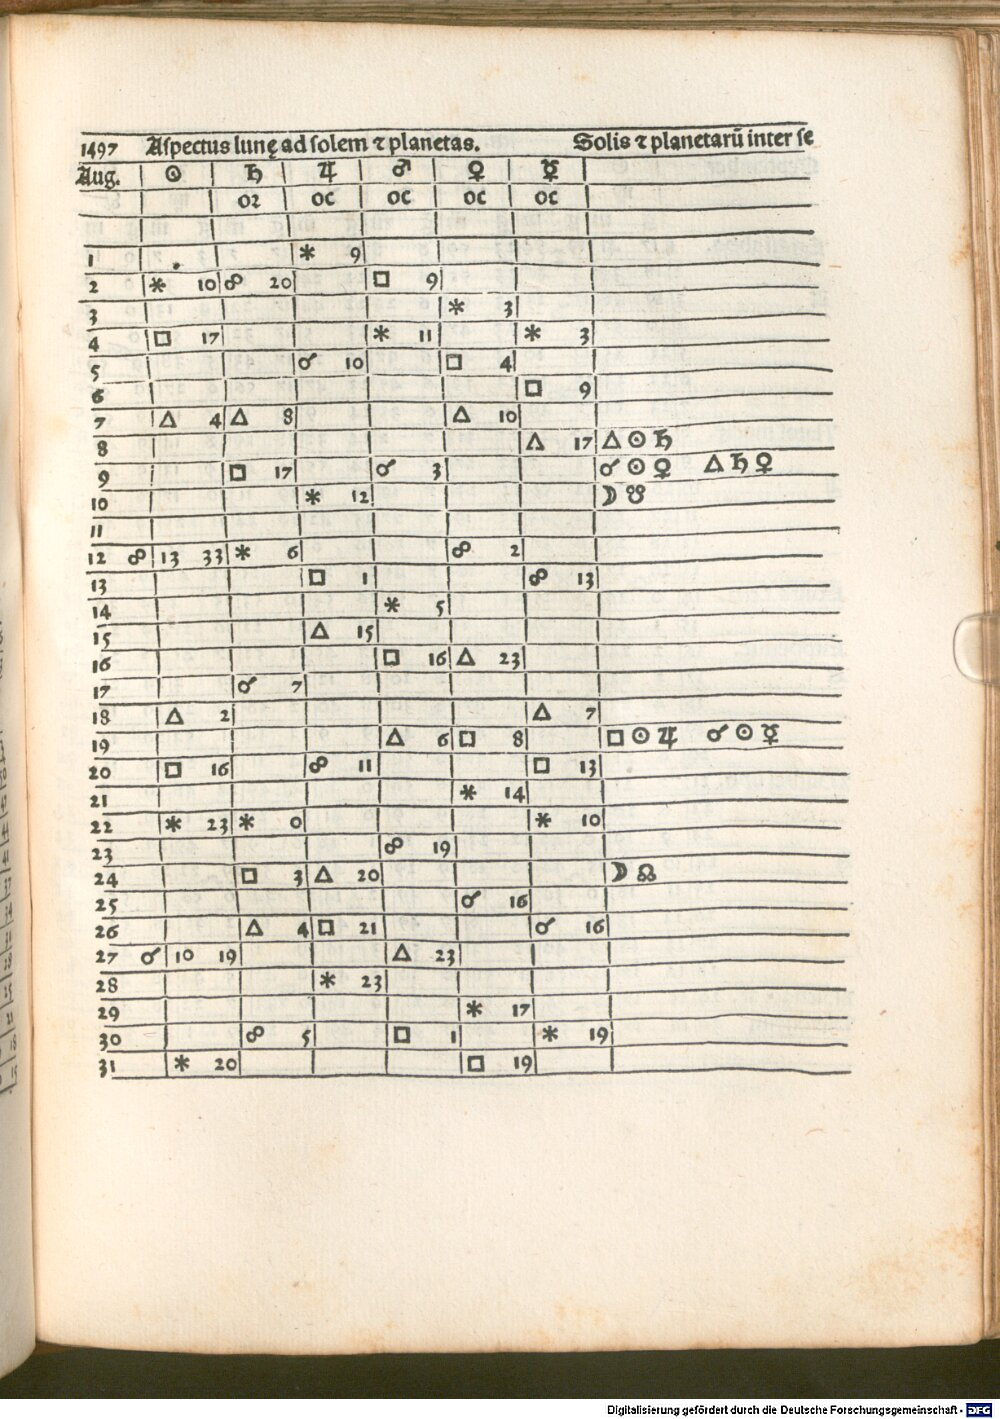 1497 Aspectus lunę ad solem ⁊ planetas. Solis ⁊ planetarū inter se
Aug. ☉ ♄ ♃ ♂ ♀ ☿
oꝛ oc oc oc oc
1 ⚹ 9
2 ⚹ 10 ☍ 20 □ 9
3 ⚹ 3
4 □ 17 ⚹ 11 ⚹ 3
5 ☌ 10 □ 4
6 □ 9
7 △ 4 △ 8 △ 10
8 △ 17 △ ☉ ♄
9 □ 17 ☌ 3 ☌ ☉ ♀ △ ♄ ♀
10 ⚹ 12 ☽ ☋
11
12 ☍ 13 33 ⚹ 6 ☍ 2
13 □ 1 ☍ 13
14 ⚹ 5
15 △ 15
16 □ 16 △ 23
17 ☌ 7
18 △ 2 △ 7
19 △ 6 □ 8 □ ☉ ♃ ☌ ☉ ☿
20 □ 16 ☍ 11 □ 13
21 ⚹ 14
22 ⚹ 23 ⚹ 0 ⚹ 10
23 ☍ 19
24 □ 3 △ 20 ☽ ☊
25 ☌ 16
26 △ 4 □ 21 ☌ 16
27 ☌ 10 19 △ 23
28 ⚹ 23
29 ⚹ 17
30 ☍ 5 □ 1 ⚹ 19
31 ⚹ 20 □ 19
Digitalisierung gefördert durch die Deutsche Forschungsgemeinschaft - DFG